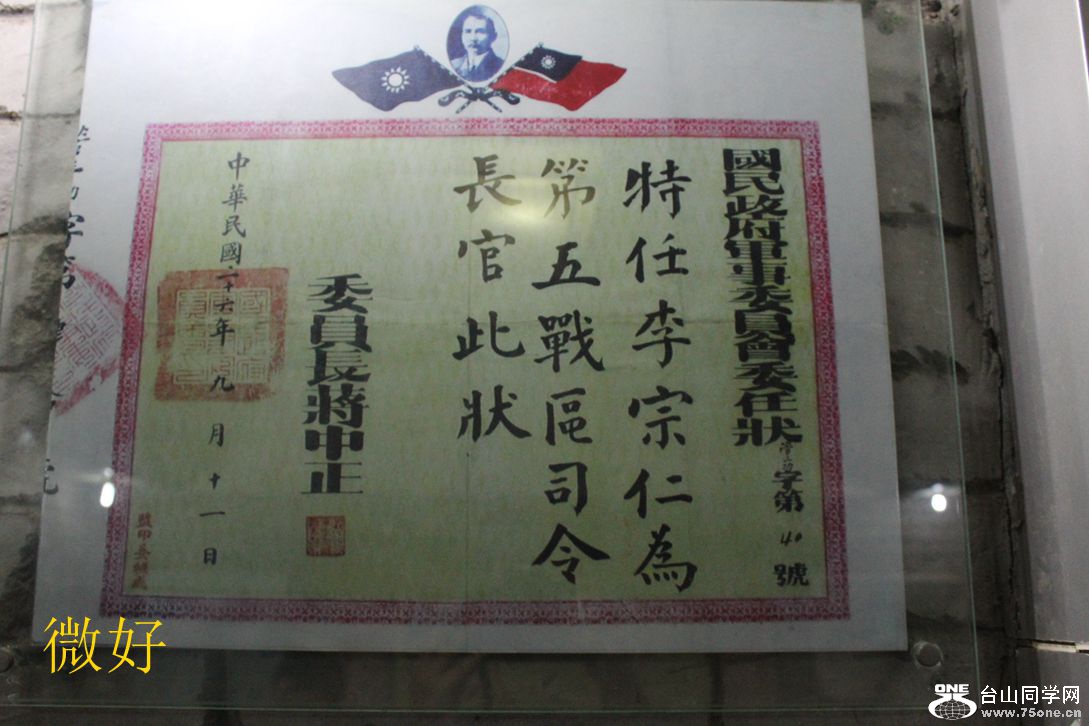 國民政府軍事委員會委任狀
字第40號
特任李宗仁為
第五戰區司令
長官此狀
委員長蔣中正
中華民國二十六年九月十一日
微好
ONE
台山同学网
www.75one.cn